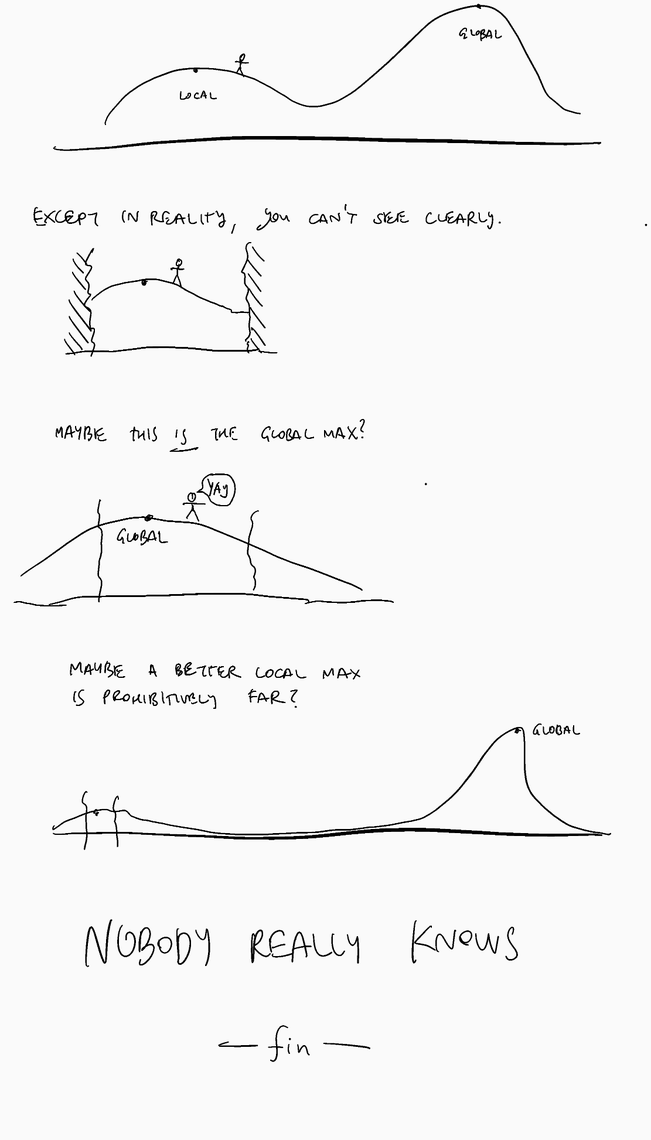 GLOBAL
LOCAL
EXCEPT IN REALITY, you CAN'T SEE CLEARLY.
MAYBE THIS is THE GLOBAL MAX?
YAY
GLOBAL
MAYBE A BETTER LOCAL MAX
IS PROHIBITIVELY FAR?
GLOBAL
NOBODY REALLY KNOWS
— fin —